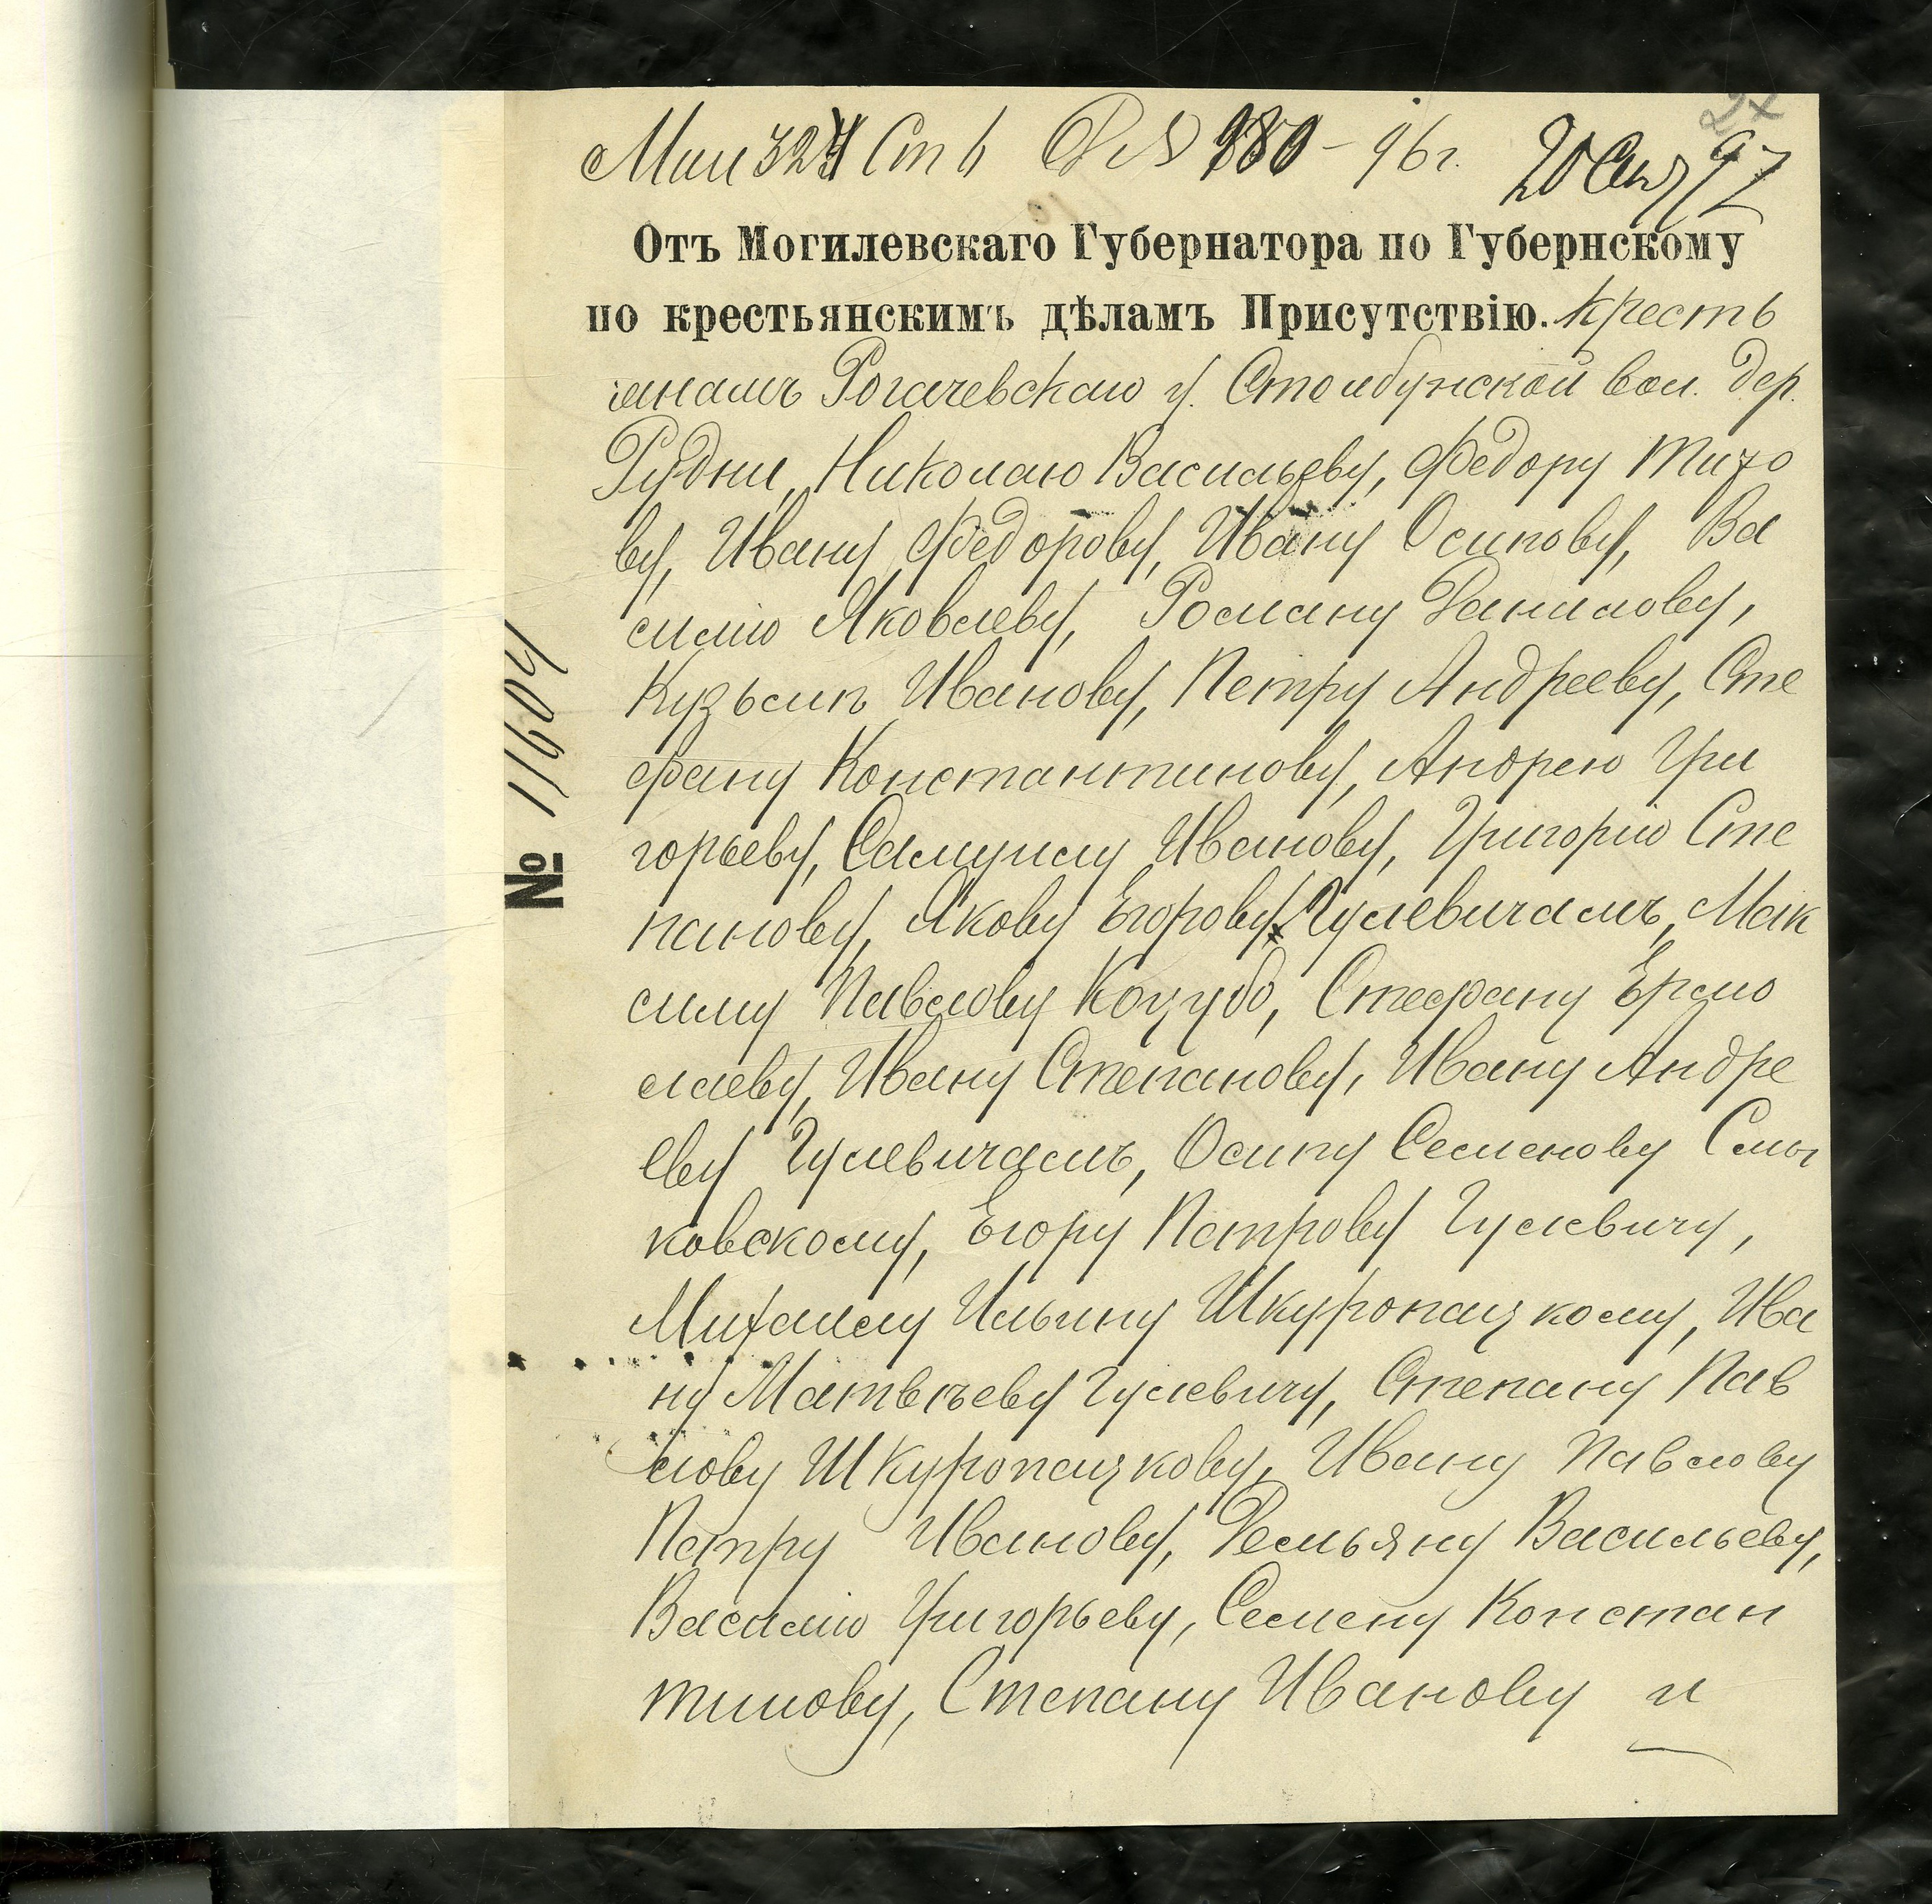 Мин 324 Ст 6 Д № 980 - 96 г. 20 Янв 97
Отъ Могилевскаго Губернатора по Губернскому
по крестьянскимъ дѣламъ Присутствію. Кресть
янамъ Рогачевскаго у. Столбунской вол. дер.
Рудни, Николаю Васильеву, Федору Тито
ву, Ивану Федорову, Ивану Осипову, Ва
силію Яковлеву, Роману Данилову,
Кузьмѣ Иванову, Петру Андрееву, Сте
фану Константинову, Андрею Гри
горьеву, Самуилу Иванову, Григорію Сте
панову, Якову Егорову Гулевичамъ, Мак
симу Павлову Козубо, Стефану Ермо
лаеву, Ивану Степанову, Ивану Андре
еву Гулевичамъ, Осипу Семенову Смы
ковскому, Егору Петрову Гулевичу,
Михаилу Ильину Шкуропацкому, Ива
ну Матвѣеву Гулевичу, Степану Пав
лову Шкуропацкову, Ивану Павлову
Петру Иванову, Демьяну Васильеву,
Василію Григорьеву, Семену Констан
тинову, Степану Иванову и
№ 11604